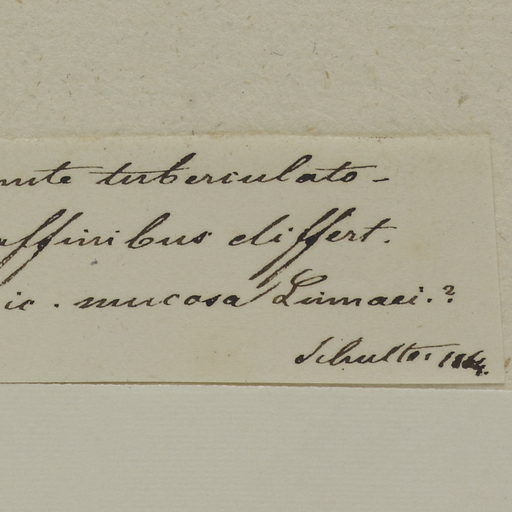 tuberculato-
affinibus differt.
ic. mucosa Linnaei.?
Schultes 1864.